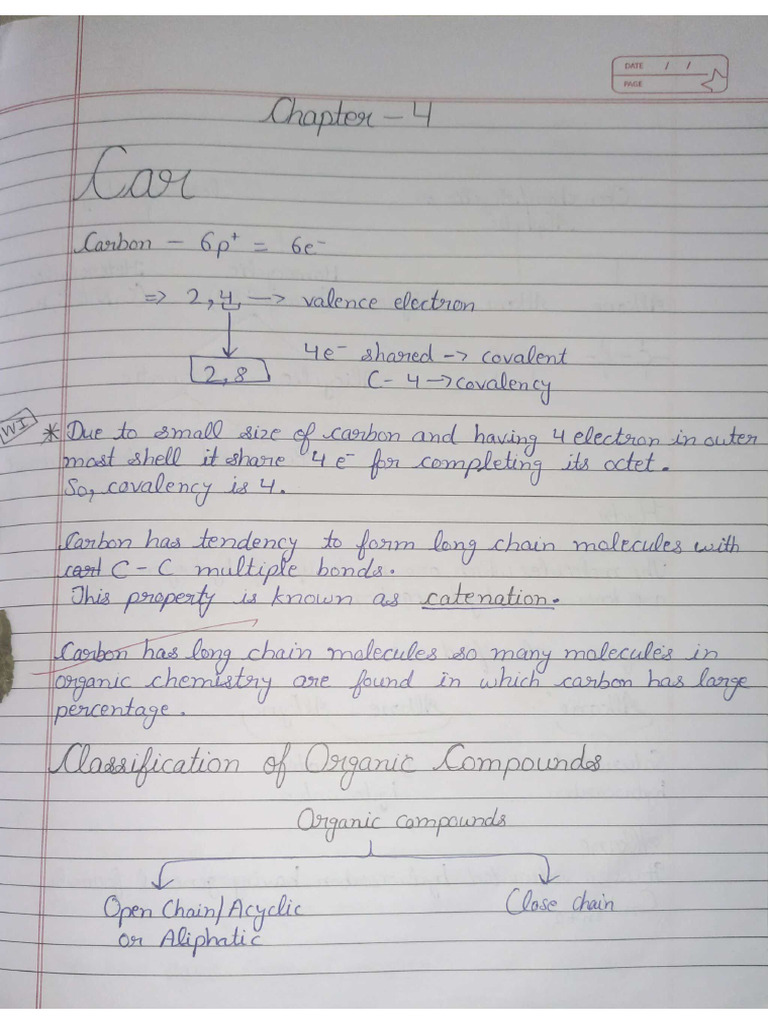 DATE / /
PAGE
Chapter - 4
Car
Carbon - 6p⁺ = 6e⁻
=> 2, 4, -> valence electron
4e⁻ shared -> covalent
2, 8
C - 4 -> covalency
WI
* Due to small size of carbon and having 4 electron in outer
most shell it share 4 e⁻ for completing its octet.
So, covalency is 4.
Carbon has tendency to form long chain molecules with
C - C multiple bonds.
This property is known as catenation.
Carbon has long chain molecules so many molecules in
organic chemistry are found in which carbon has large
percentage.
Classification of Organic Compounds
Organic compounds
Open Chain/Acyclic
or Aliphatic
Close chain